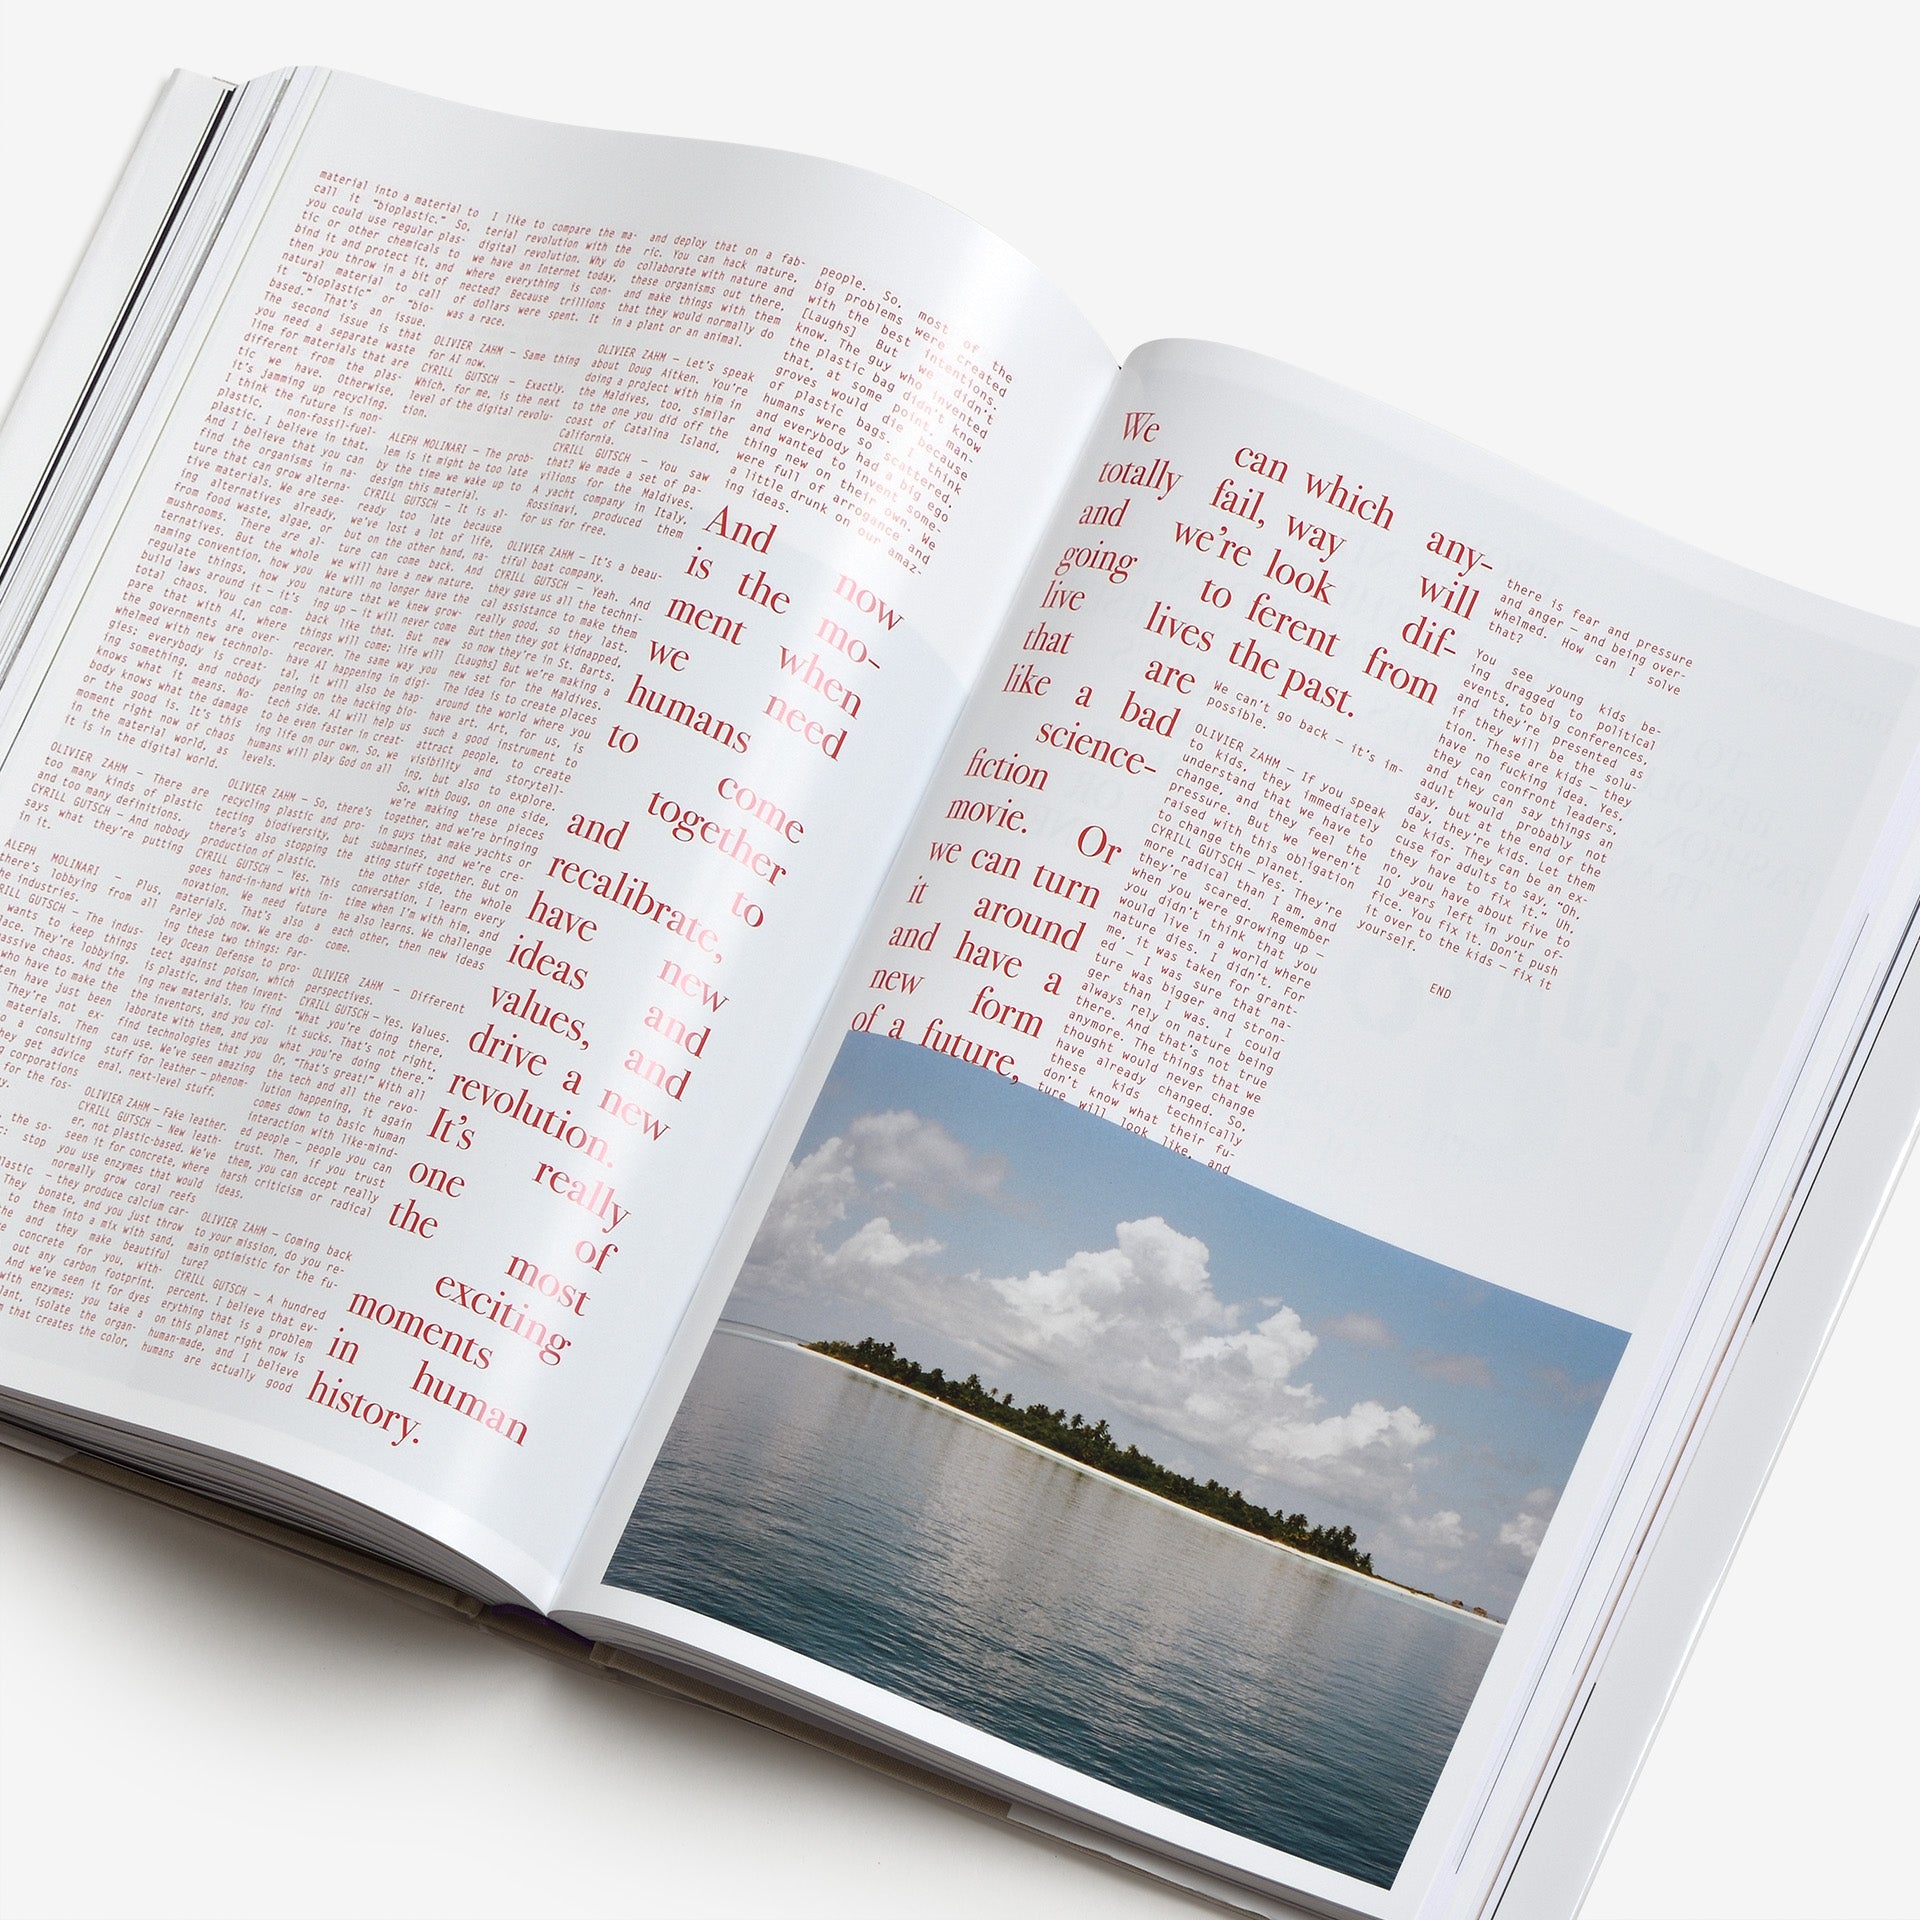 material into a material to
call it "bioplastic." So,
you could use regular plas-
tic or other chemicals to
bind it and protect it, and
then you throw in a bit of
natural material to call
it "bioplastic" or "bio-
based." That's an issue.
The second issue is that
you need a separate waste
line for materials that are
different from the plas-
tic we have. Otherwise,
it's jamming up recycling.
I think the future is non-
plastic, non-fossil-fuel-
plastic. I believe in that.
And I believe that you can
find the organisms in na-
ture that can grow alterna-
tive materials. We are see-
ing alternatives already,
from food waste, algae, or
mushrooms. There are al-
ternatives. But the whole
naming convention, how you
regulate things, how you
build laws around it – it's
total chaos. You can com-
pare that with AI, where
the governments are over-
whelmed with new technolo-
gies; everybody is creat-
ing something, and nobody
knows what it means. No-
body knows what the damage
or the good is. It's this
moment right now of chaos
in the material world, as
it is in the digital world.
OLIVIER ZAHM – There are
too many kinds of plastic
and too many definitions.
CYRILL GUTSCH – And nobody
says what they're putting
in it.
ALEPH MOLINARI – Plus,
there's lobbying from all
the industries.
GUTSCH – The indus-
wants to keep things
They're lobbying.
chaos. And the
who have to make the
have just been
They're not ex-
materials. Then
a consulting
they get advice
corporations
for the fos-
the so-
stop
They
to
the
I like to compare the ma-
terial revolution with the
digital revolution. Why do
we have an Internet today,
where everything is con-
nected? Because trillions
of dollars were spent. It
was a race.
OLIVIER ZAHM – Same thing
for AI now.
CYRILL GUTSCH – Exactly.
Which, for me, is the next
level of the digital revolu-
tion.
ALEPH MOLINARI – The prob-
lem is it might be too late
by the time we wake up to
design this material.
CYRILL GUTSCH – It is al-
ready too late because
we've lost a lot of life,
but on the other hand, na-
ture can come back. And
we will have a new nature.
We will no longer have the
nature that we knew grow-
ing up – it will never come
back like that. But new
things will come; life will
recover. The same way you
have AI happening in digi-
tal, it will also be hap-
pening on the hacking bio-
tech side. AI will help us
to be even faster in creat-
ing life on our own. So, we
humans will play God on all
levels.
OLIVIER ZAHM – So, there's
recycling plastic and pro-
tecting biodiversity, but
there's also stopping the
production of plastic.
CYRILL GUTSCH – Yes. This
goes hand-in-hand with in-
novation. We need future
materials. That's also a
Parley job now. We are do-
ing these two things: Par-
ley Ocean Defense to pro-
tect against poison, which
is plastic, and then invent-
ing new materials. You find
the inventors, and you col-
laborate with them, and you
find technologies that you
can use. We've seen amazing
stuff for leather – phenom-
enal, next-level stuff.
OLIVIER ZAHM – Fake leather.
CYRILL GUTSCH – New leath-
er, not plastic-based. We've
seen it for concrete, where
you use enzymes that would
normally grow coral reefs
– they produce calcium car-
bonate, and you just throw
them into a mix with sand,
and they make beautiful
concrete for you, with-
out any carbon footprint.
And we've seen it for dyes
with enzymes: you take a
plant, isolate the organ-
that creates the color,
and deploy that on a fab-
ric. You can hack nature,
collaborate with nature and
these organisms out there,
and make things with them
that they would normally do
in a plant or an animal.
OLIVIER ZAHM – Let's speak
about Doug Aitken. You're
doing a project with him in
the Maldives, too, similar
to the one you did off the
coast of Catalina Island,
California.
CYRILL GUTSCH – You saw
that? We made a set of pa-
vilions for the Maldives.
A yacht company in Italy,
Rossinavi, produced them
for us for free.
OLIVIER ZAHM – It's a beau-
tiful boat company.
CYRILL GUTSCH – Yeah. And
they gave us all the techni-
cal assistance to make them
really good, so they last.
But then they got kidnapped,
so now they're in St. Barts.
[Laughs] But we're making a
new set for the Maldives.
The idea is to create places
around the world where you
have art. Art, for us, is
such a good instrument to
attract people, to create
visibility and storytell-
ing, but also to explore.
So, with Doug, on one side,
we're making these pieces
together, and we're bringing
in guys that make yachts or
submarines, and we're cre-
ating stuff together. But on
the other side, the whole
conversation, I learn every
time when I'm with him, and
he also learns. We challenge
each other, then new ideas
come.
OLIVIER ZAHM – Different
perspectives.
CYRILL GUTSCH – Yes. Values.
"What you're doing there,
it sucks. That's not right,
what you're doing there."
Or, "That's great!" With all
the tech and all the revo-
lution happening, it again
comes down to basic human
interaction with like-mind-
ed people – people you can
trust. Then, if you trust
them, you can accept really
harsh criticism or radical
ideas.
OLIVIER ZAHM – Coming back
to your mission, do you re-
main optimistic for the fu-
ture?
CYRILL GUTSCH – A hundred
percent. I believe that ev-
erything that is a problem
on this planet right now is
human-made, and I believe
humans are actually good
people. So, most of the
big problems were created
with the best intentions.
[Laughs] But we didn't
know. The guy who invented
the plastic bag didn't know
that, at some point, man-
groves would die because
of plastic bags. I think
humans were so scattered,
and everybody had a big ego
and wanted to invent some-
thing new on their own. We
were full of arrogance and
a little drunk on our amaz-
ing ideas.
And now
is the mo-
ment when
we need
humans
to come
together
and to
recalibrate,
have new
ideas and
values, and
drive a new
revolution.
It's really
one of
the most
exciting
moments
in human
history.
We can which any-
totally fail, way will
and we're look dif-
going to ferent from
live lives the past.
that are
like a bad
science-
fiction
movie. Or
we can turn
it around
and have a
new form
of a future,
We can't go back – it's im-
possible.
OLIVIER ZAHM – If you speak
to kids, they immediately
understand that we have to
change, and they feel the
pressure. But we weren't
raised with this obligation
to change the planet.
CYRILL GUTSCH – Yes. They're
more radical than I am, and
they're scared. Remember
when you were growing up –
you didn't think that you
would live in a world where
nature dies. I didn't. For
me, it was taken for grant-
ed – I was sure that na-
ture was bigger and stron-
ger than I was. I could
always rely on nature being
there. And that's not true
anymore. The things that we
thought would never change
have already changed. So,
these kids technically
don't know what their fu-
ture will look like, and
there is fear and pressure
and anger – and being over-
whelmed. How can I solve
that?
You see young kids be-
ing dragged to political
events, to big conferences,
and they're presented as
if they will be the solu-
tion. These are kids – they
have no fucking idea. Yes,
they can confront leaders,
and they can say things an
adult would probably not
say, but at the end of the
day, they're kids. Let them
be kids. They can be an ex-
cuse for adults to say, "Oh,
they have to fix it." Uh,
no, you have about five to
10 years left in your of-
fice. You fix it. Don't push
it over to the kids – fix it
yourself.
END